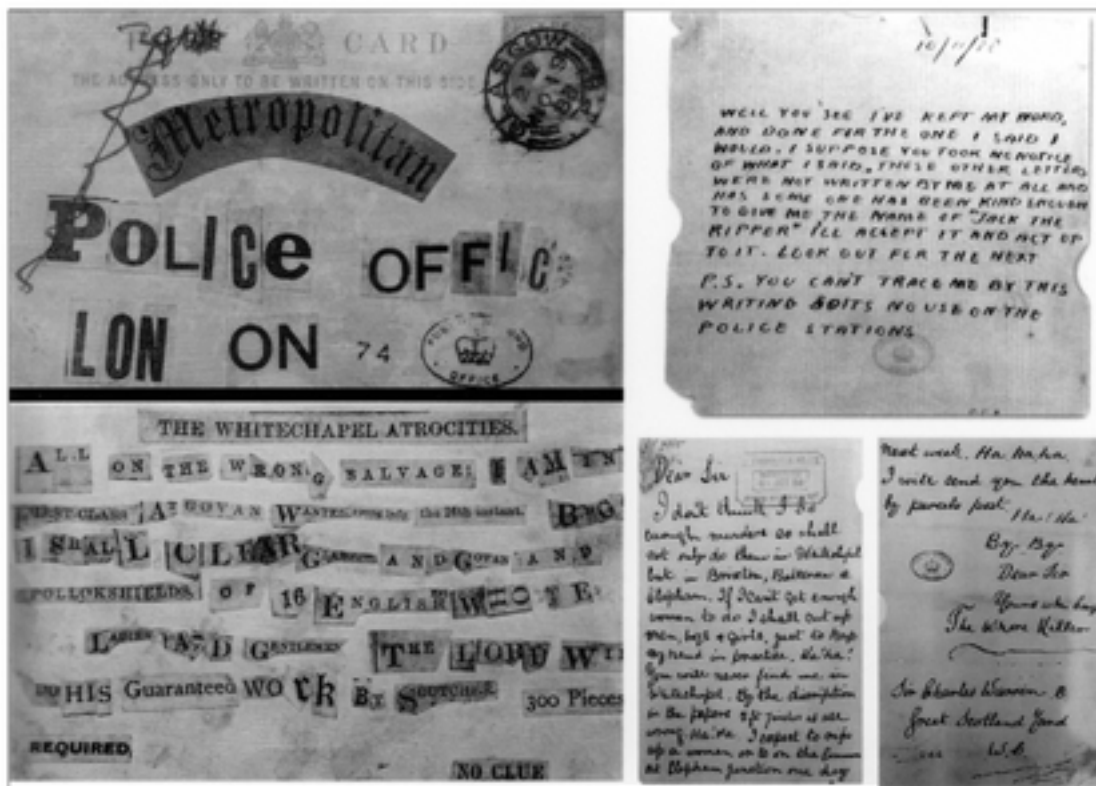 CARD
THE ADDRESS ONLY TO BE WRITTEN ON THIS SIDE
GLASGOW
Metropolitan
POLICe OFFIC
LON ON 74
OFFICE
THE WHITECHAPEL ATROCITIES.
ALL ON THE WRONG SALVAGE: I AM IN
AT GOVAN WANTED the 26th instant.
I SHALL CLEAR GLASGOW AND GOVAN AND
POLLOKSHIELDS, OF 16 ENGLISH
LADIES AND GENTLEMEN THE LORD WI
HIS Guaranteed WOrk BY 300 Pieces
REQUIRED,
NO CLUE
WELL YOU SEE I'VE KEPT MY WORD,
AND DONE FOR THE ONE I SAID I
WOULD. I SUPPOSE YOU TOOK NO NOTICE
OF WHAT I SAID. THESE OTHER LETTERS
WERE NOT WRITTEN BY ME AT ALL AND
HAS SOME ONE HAS BEEN KIND ENOUGH
TO GIVE ME THE NAME OF "JACK THE
RIPPER" I'LL ACCEPT IT AND ACT UP
TO IT. LOOK OUT FOR THE NEXT
P.S. YOU CAN'T TRACE ME BY THIS
WRITING SO ITS NO USE ON THE
POLICE STATIONS
Dear Sir
I don't think I do
enough murders so shall
not only do them in Whitechapel
but in Brixton, Battersea &
Clapham. If I can't get enough
women to do I shall cut up
men, boys & girls, just to keep
my hand in practice. Ha! ha!
You will never find me in
Whitechapel. By the description
in the papers of Jack is all
wrong Ha! Ha I expect to rip
up a woman or to on the Common
at Clapham Junction one day
next week. Ha ha ha
I will send you the heart
by parcels post.
Ha! Ha!
Bye Bye
Dear Sir
Yours when
The Whore Killer
Sir Charles Warren
Great Scotland Yard
W.C.